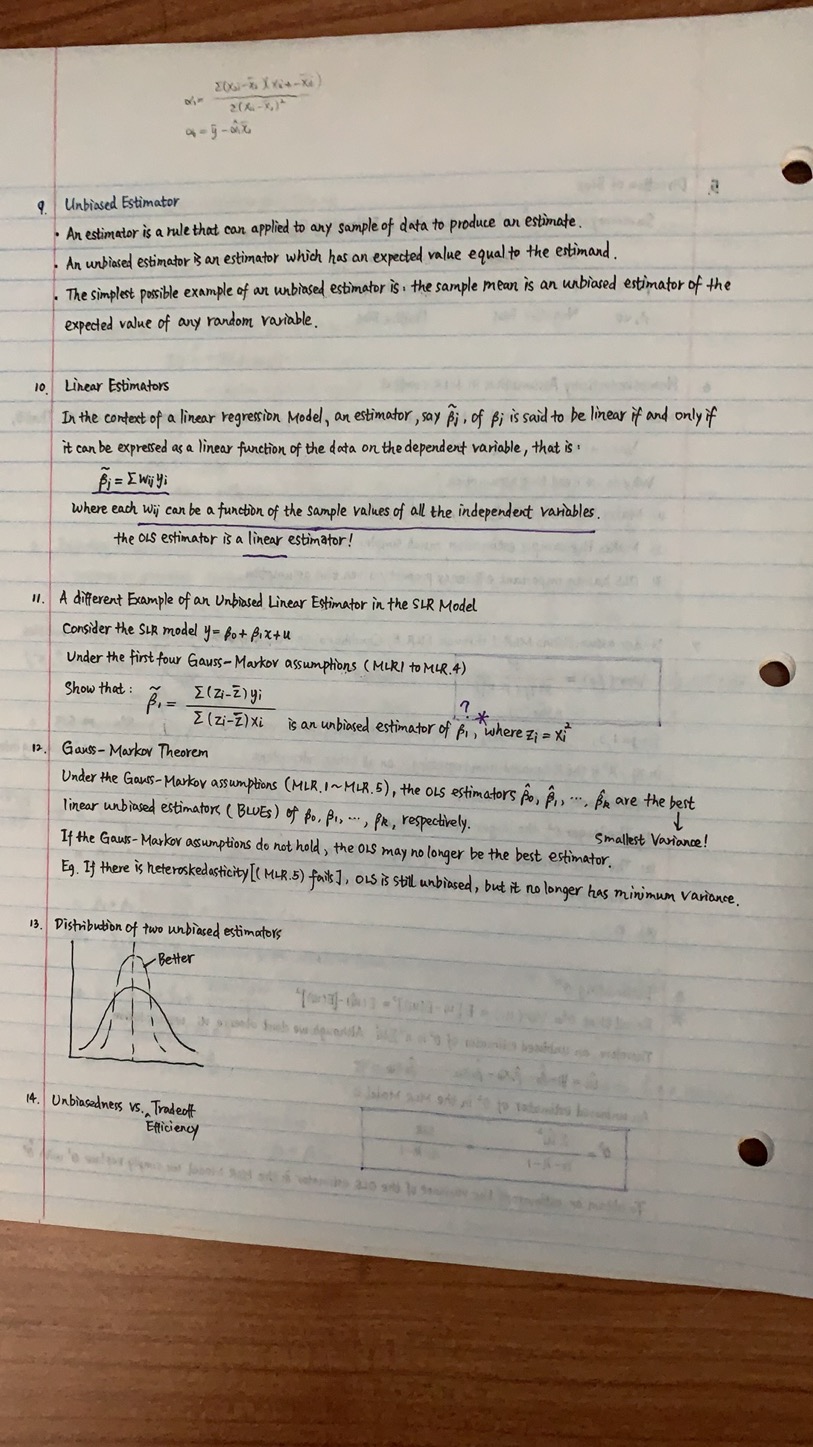 α₁ = Σ(x₂ᵢ-x̄₂)(xᵢ-x̄ᵢ) / Σ(xᵢ-x̄ᵢ)²
= ȳ - α̂₁x̄
9. Unbiased Estimator
• An estimator is a rule that can applied to any sample of data to produce an estimate.
• An unbiased estimator is an estimator which has an expected value equal to the estimand.
• The simplest possible example of an unbiased estimator is: the sample mean is an unbiased estimator of the
expected value of any random variable.
10. Linear Estimators
In the context of a linear regression Model, an estimator, say β̃j, of βj is said to be linear if and only if
it can be expressed as a linear function of the data on the dependent variable, that is:
β̃j = Σwijyi
Where each wij can be a function of the sample values of all the independent variables.
the OLS estimator is a linear estimator!
11. A different Example of an Unbiased Linear Estimator in the SLR Model
Consider the SLR model y = β₀ + β₁x + u
Under the first four Gauss-Markov assumptions (MLR.1 to MLR.4)
Show that: β̃₁ = Σ(zi-z̄)yi / Σ(zi-z̄)xi is an unbiased estimator of β₁, where zi = xi²
? *
12. Gauss-Markov Theorem
Under the Gauss-Markov assumptions (MLR.1~MLR.5), the OLS estimators β̂₀, β̂₁, ..., β̂k are the best
linear unbiased estimators (BLUEs) of β₀, β₁, ..., βk, respectively.
↓
Smallest Variance!
If the Gauss-Markov assumptions do not hold, the OLS may no longer be the best estimator.
Eg. If there is heteroskedasticity [(MLR.5) fails], OLS is still unbiased, but it no longer has minimum variance.
13. Distribution of two unbiased estimators
Better
14. Unbiasedness vs. ^ Tradeoff
Efficiency